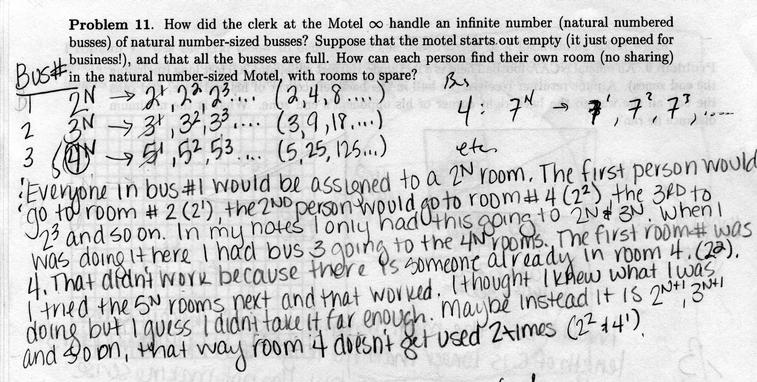 Problem 11. How did the clerk at the Motel ∞ handle an infinite number (natural numbered
busses) of natural number-sized busses? Suppose that the motel starts out empty (it just opened for
business!), and that all the busses are full. How can each person find their own room (no sharing)
in the natural number-sized Motel, with rooms to spare?
Bus#
1 2^N → 2^1, 2^2, 2^3.... (2,4,8....)
2 3^N → 3^1, 3^2, 3^3.... (3,9,18....)
3 5^N → 5^1, 5^2, 5^3 ... (5,25,125...)
Bus
4: 7^N → 7, 7^2, 7^3, ....
etc.
Everyone in bus #1 would be assigned to a 2^N room. The first person would
go to room # 2 (2^1), the 2ND person would go to room # 4 (2^2) the 3RD to
2^3 and so on. In my notes I only had this going to 2N & 3N. When I
was doing it here I had bus 3 going to the 4N rooms. The first room# was
4. That didn't work because there is someone already in room 4. (2^2).
I tried the 5^N rooms next and that worked. I thought I knew what I was
doing but I guess I didn't take it far enough. Maybe instead it is 2^N+1, 3^N+1
and so on, that way room 4 doesn't get used 2 times (2^2 & 4^1).